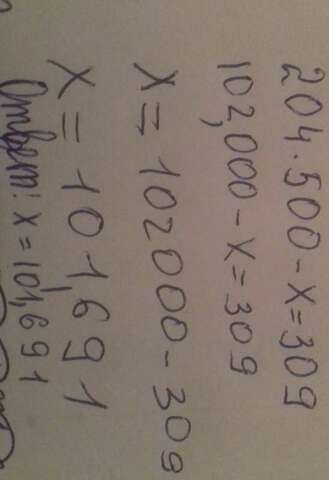 204·500-x=309
102,000-x=309
x=102000-309
x=101,691
Ответ: x=101,691